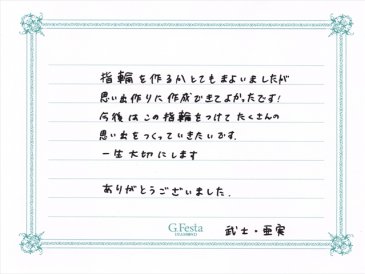 指輪を作るかとてもまよいましたが
思い出作りに作成できてよかったです!
今後はこの指輪をつけてたくさんの
思い出をつくっていきたいです.
一生大切にします
ありがとうございました.
G.Festa
武士・亜実